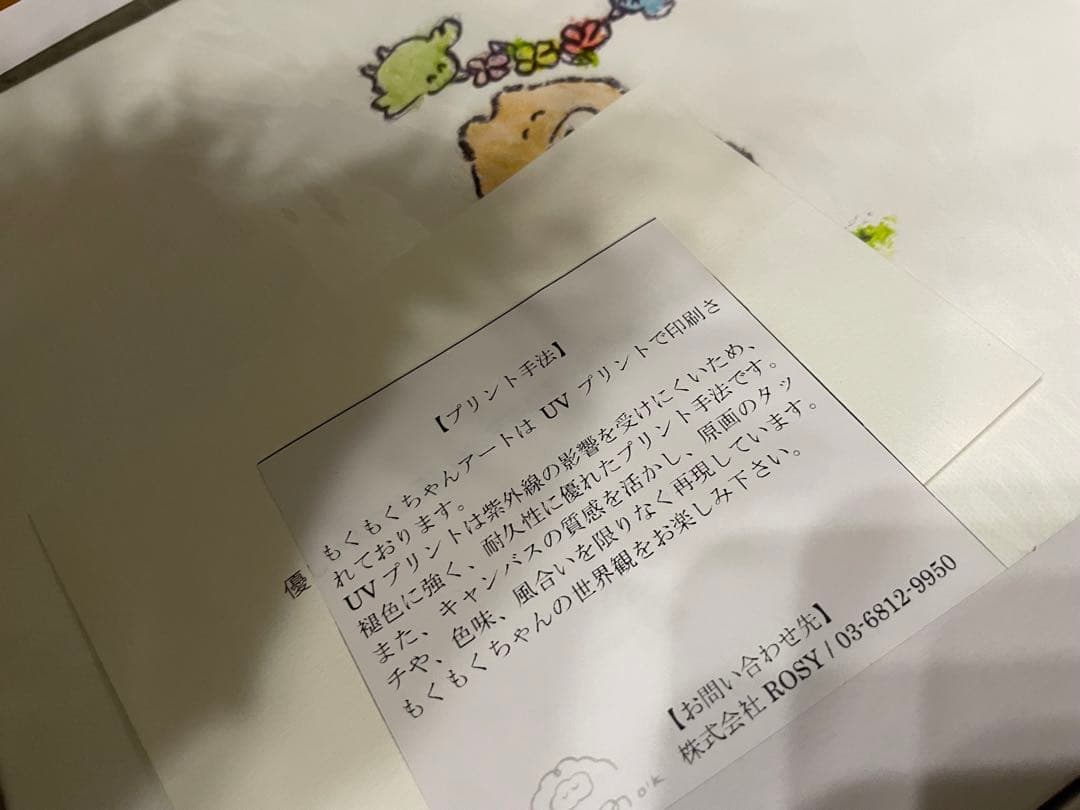 【プリント手法】
もくもくちゃんアートは UV プリントで印刷さ
れております。
UV プリントは紫外線の影響を受けにくいため、
褪色に強く、耐久性に優れたプリント手法です。
また、キャンバスの質感を活かし、原画のタッ
チや、色味、風合いを限りなく再現しています。
もくもくちゃんの世界観をお楽しみ下さい。
【お問い合わせ先】
株式会社 ROSY / 03-6812-9950
優